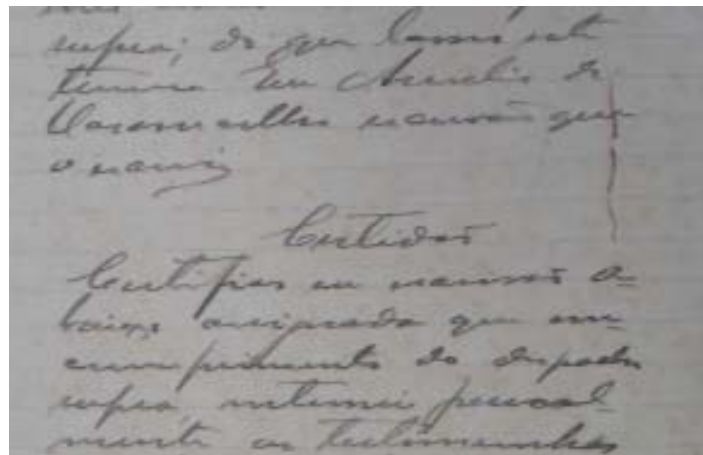 supra; do que lavrei este
termo Eu Aurelio de
Vasconcellos escrivão que
o escrevi
Certidão
Certifico eu escrivão a-
baixo assignado que em
cumprimento do despacho
supra, intimei pessoal-
mente as testimunhas